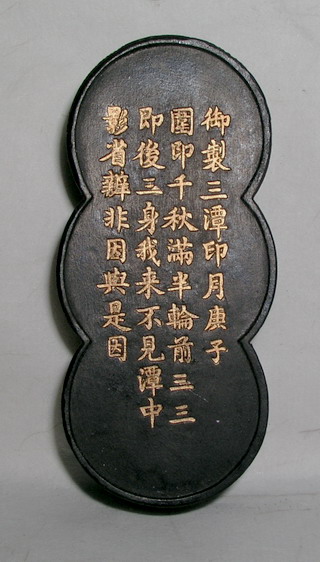 御製三潭印月庚子
圓印千秋滿半輪前三三
即後三身我来不見潭中
影省辨非因與是因